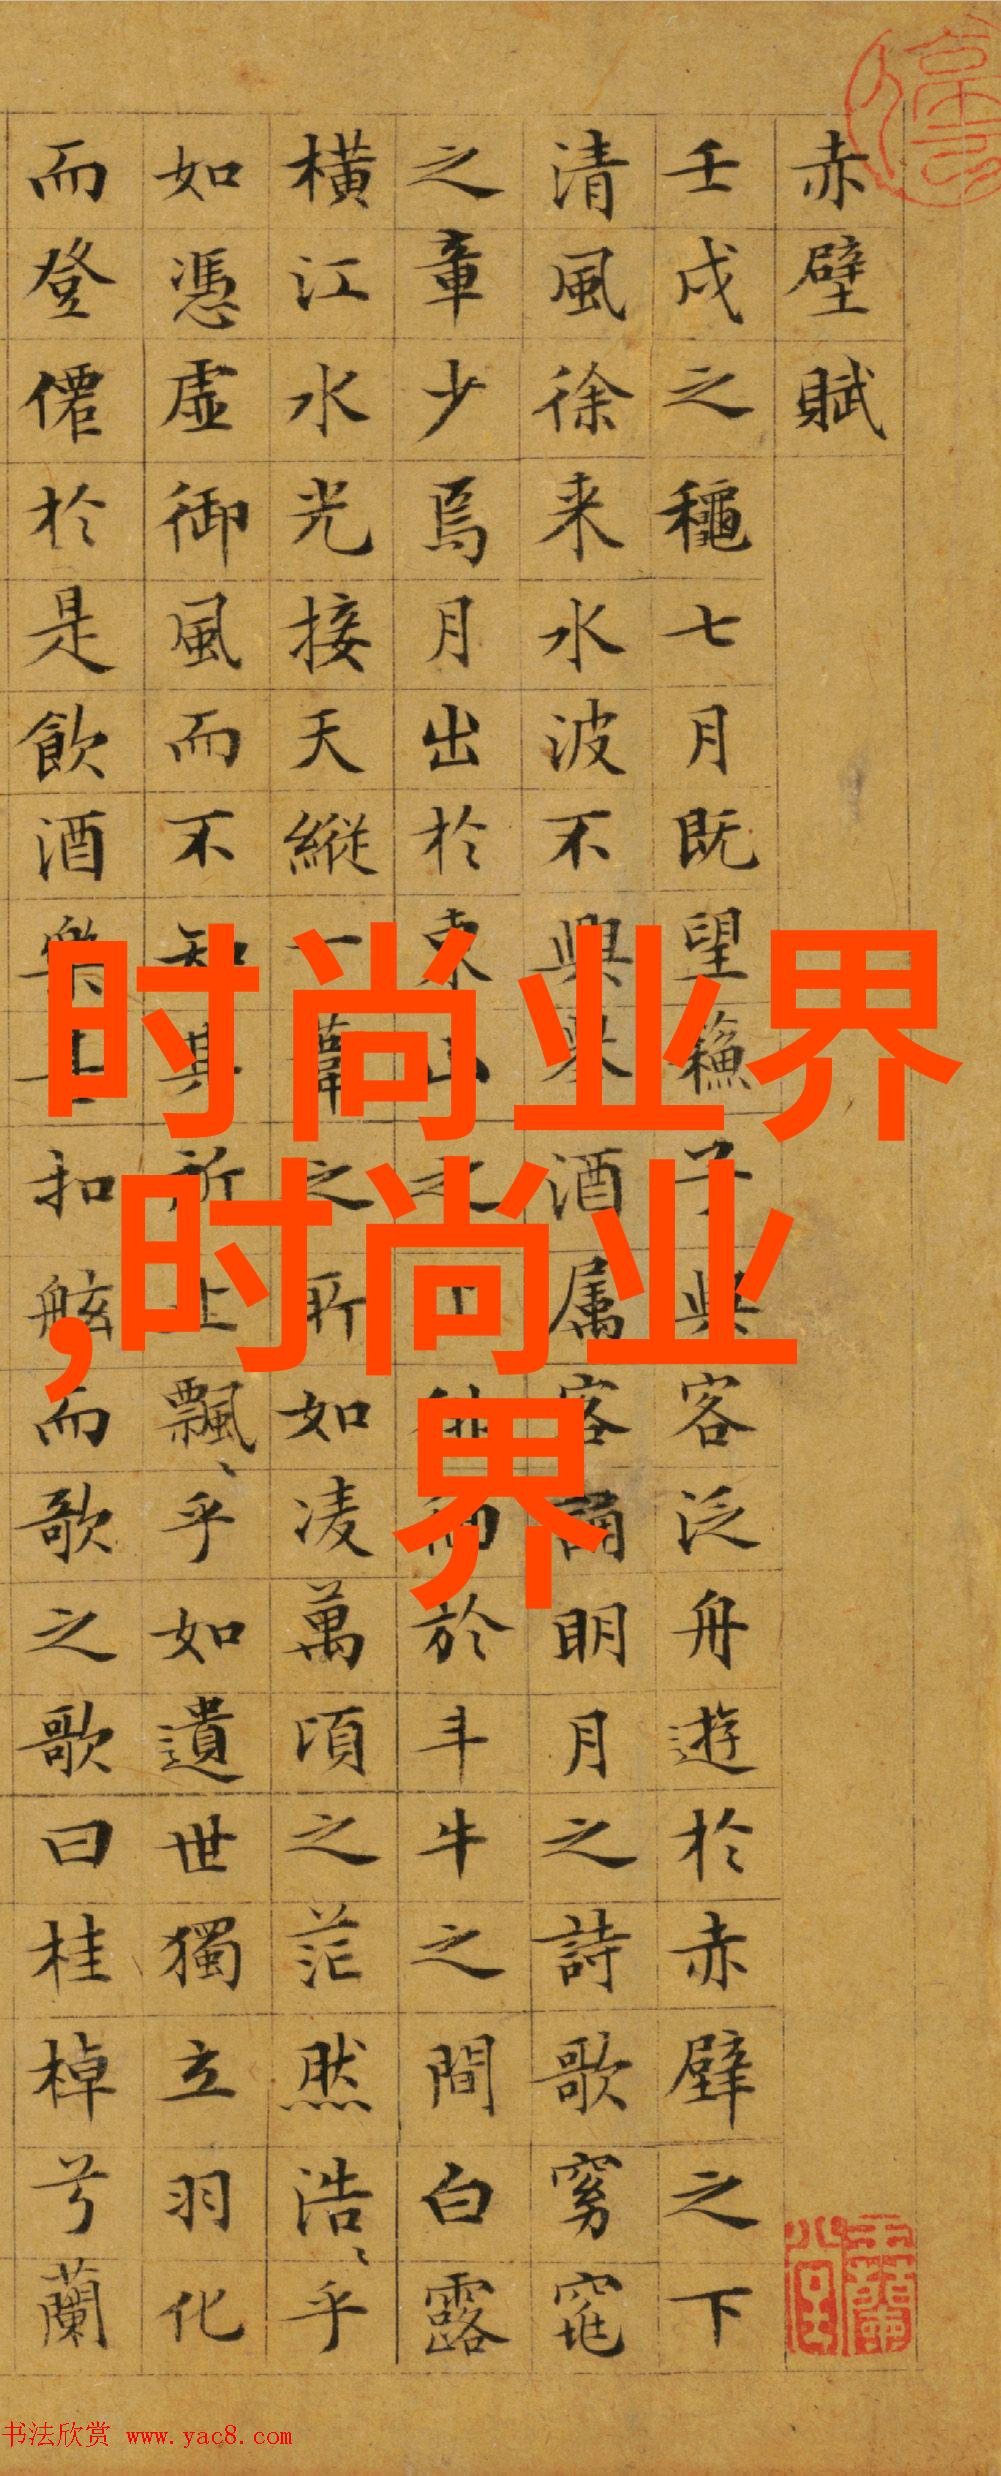 赤壁賦
壬戌之龝七月既望蘓子與客泛舟遊於赤壁之下
清風徐来水波不興舉酒属客誦明月之詩歌窈窕
之章少焉月出於東山之上徘徊於斗牛之間白露
橫江水光接天縱一葦之所如凌萬頃之茫然浩〻乎
如憑虛御風而不知其所止飄〻乎如遺世獨立羽化
而登僊於是飲酒樂甚扣舷而歌之歌曰桂棹兮蘭
时尚业界
,时尚业
界
书法欣赏 www.yac8.com